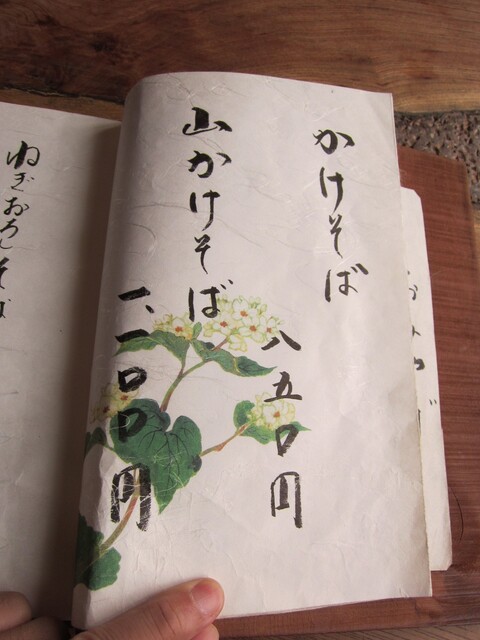 かけそば
八五〇円
山かけそば
一、一〇〇円
ねぎおろしそば